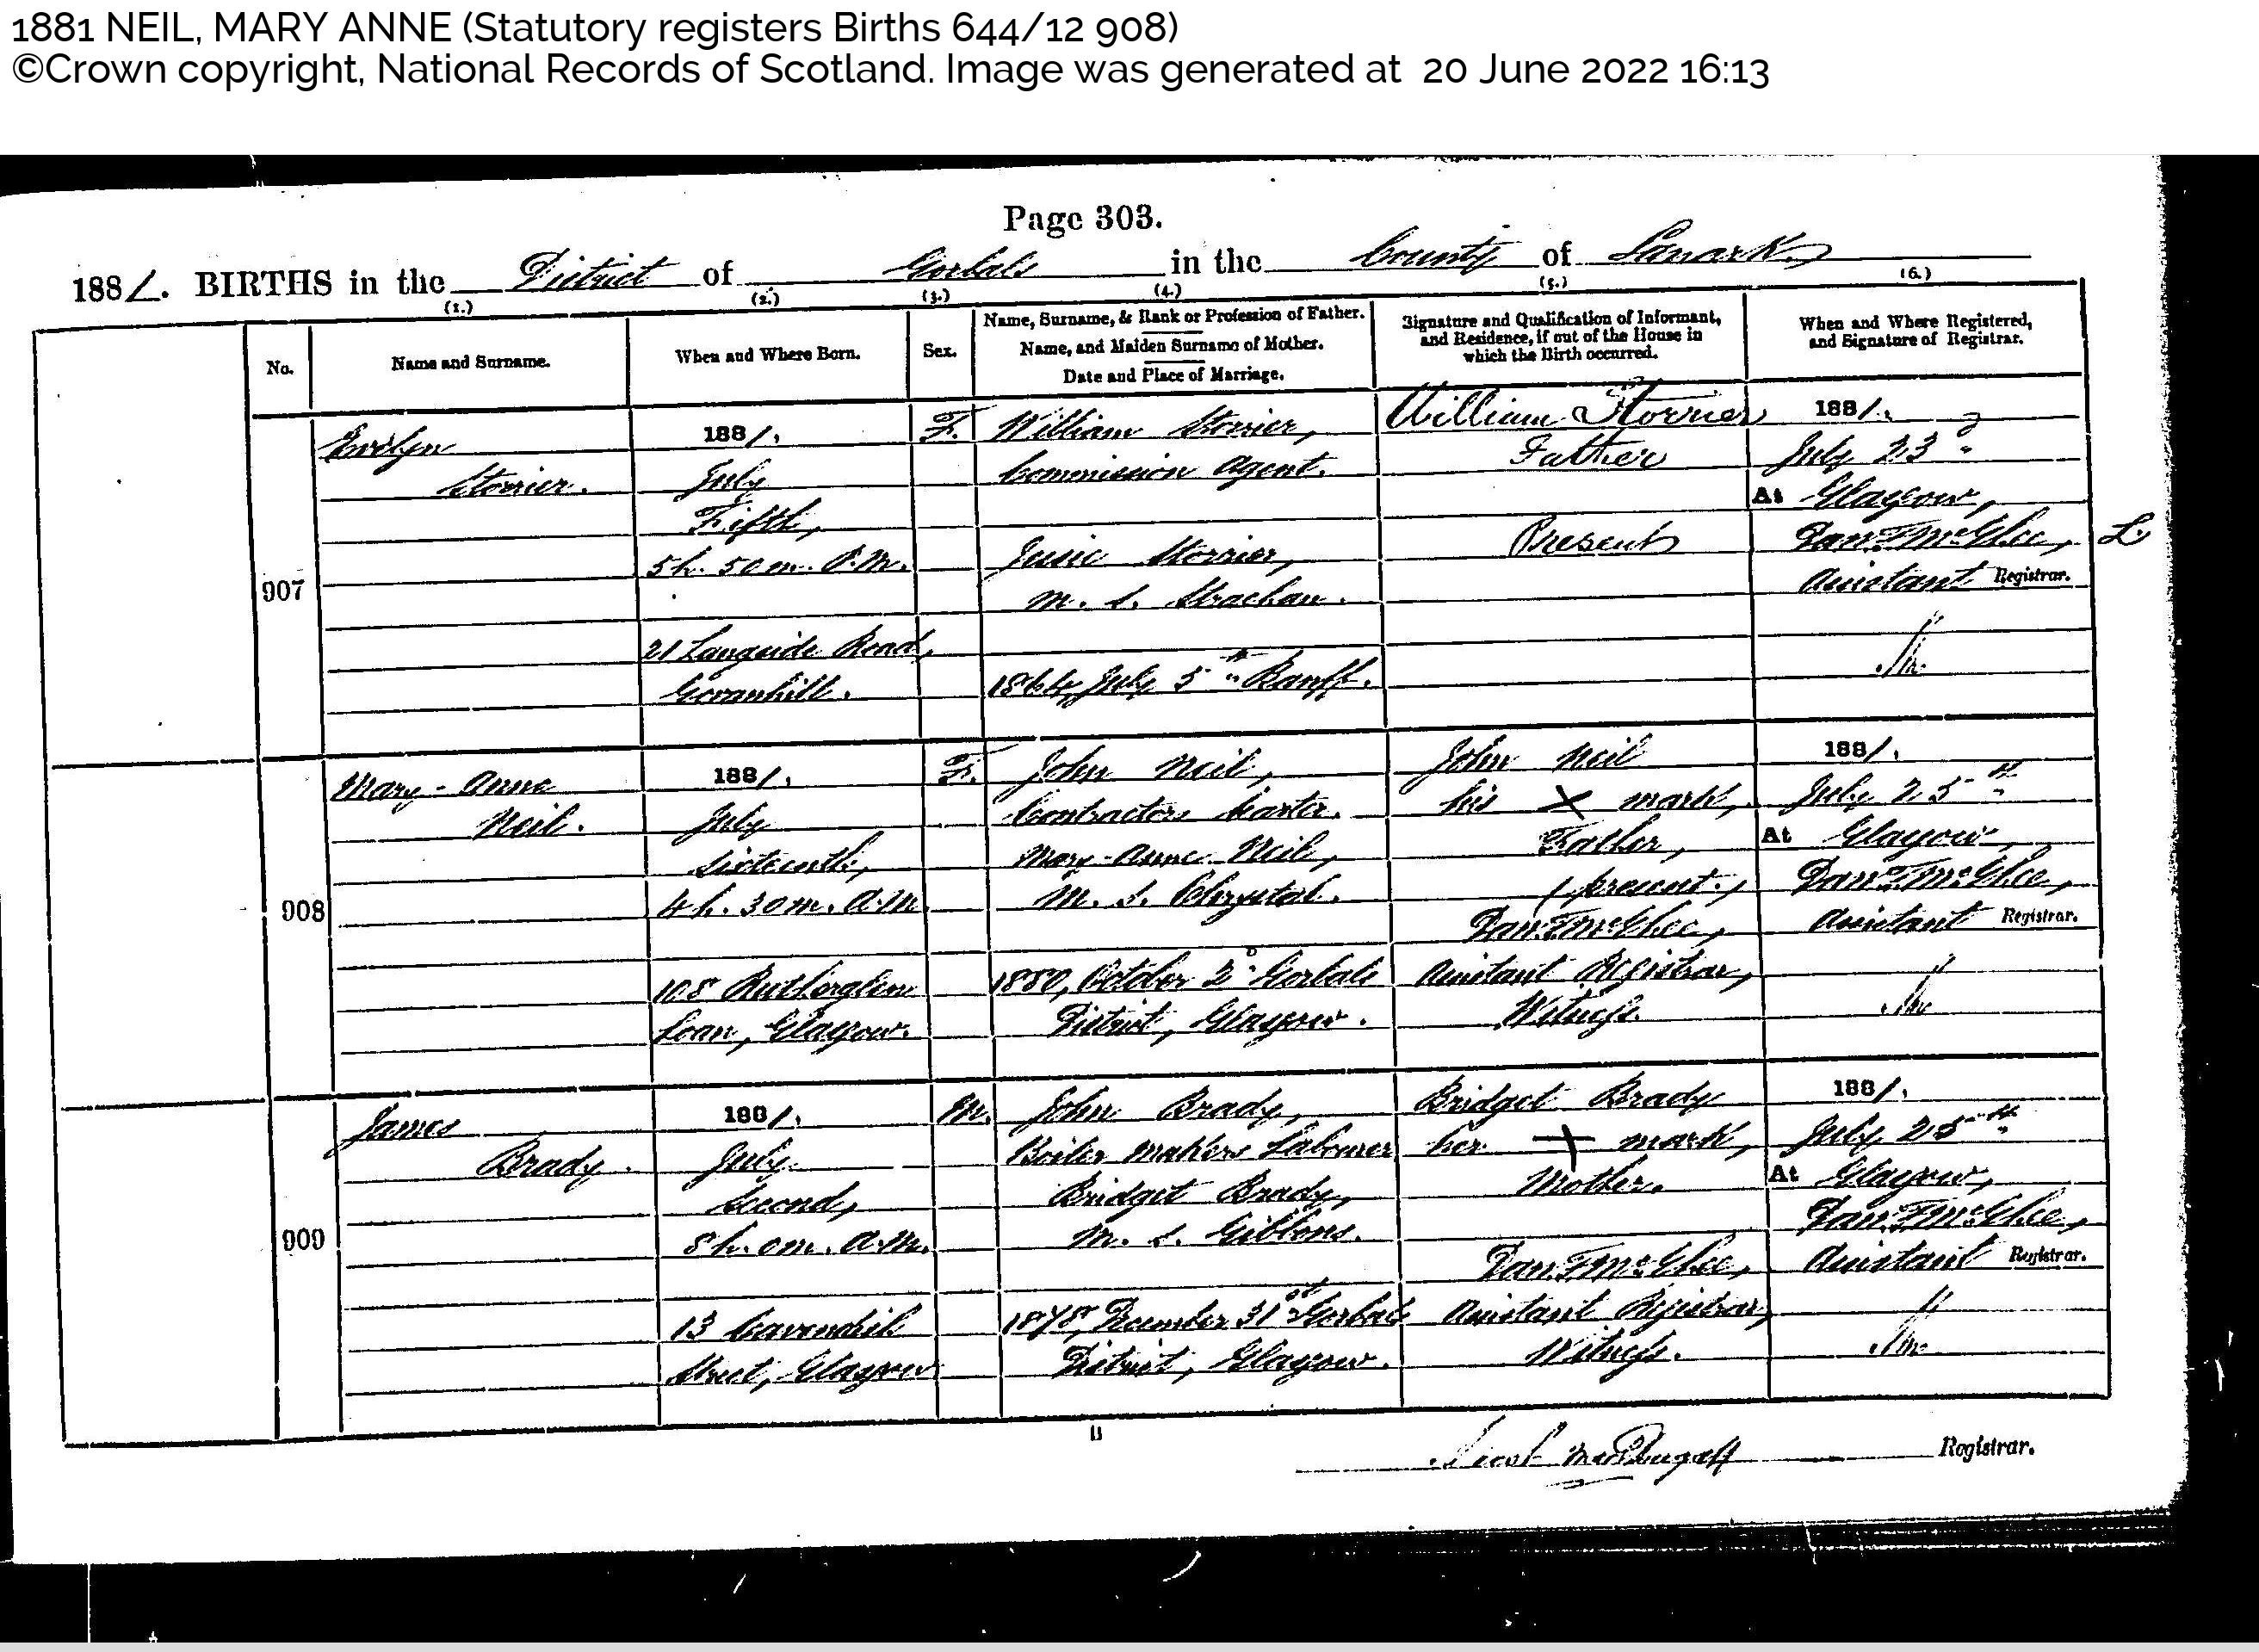 1881 NEIL, MARY ANNE (Statutory registers Births 644/12 908)
©Crown copyright, National Records of Scotland. Image was generated at 20 June 2022 16:13
Page 303.
1881. BIRTHS in the District of Gorbals in the County of Lanark
(1.) (2.) (3.) (4.) (5.) (6.)
No.
Name and Surname.
When and Where Born.
Sex.
Name, Surname, & Rank or Profession of Father.
Name, and Maiden Surname of Mother.
Date and Place of Marriage.
Signature and Qualification of Informant,
and Residence, if out of the House in
which the Birth occurred.
When and Where Registered,
and Signature of Registrar.
907
Evelyn
Storrier.
1881.
July
Fifth,
5h. 50m. P.M.
21 Langside Road,
Govanhill.
F.
William Storrier,
Commission Agent.
Jessie Storrier,
m. s. Strachan.
1864, July 5th Banff.
William Storrier
Father
Present
1881.
July 23d
At Glasgow,
Dan. F. McGhee,
Assistant Registrar.
L
908
Mary-Anne
Neil.
1881.
July
Sixteenth,
4h. 30m. A.M.
108 Rutherglen
Loan, Glasgow.
F.
John Neil,
Contractors Carter.
Mary-Anne Neil,
M. S. Chrystal.
1880, October 2d Gorbals
District, Glasgow.
John Neil
his x mark,
Father,
(present.)
Dan. F. McGhee,
Assistant Registrar,
Witness.
1881.
July 25th
At Glasgow,
Dan. F. McGhee,
Assistant Registrar.
909
James
Brady.
1881.
July
Second,
8h. 0m. A.M.
13 Cavendish
Street, Glasgow
M.
John Brady,
Boiler Makers Labourer
Bridget Brady,
M. S. Gibbons.
1878, December 31st Gorbals
District, Glasgow.
Bridget Brady
her + mark,
Mother.
Dan. F. McGhee,
Assistant Registrar,
Witness.
1881.
July 25th
At Glasgow,
Dan. F. McGhee,
Assistant Registrar.
McDougall Registrar.